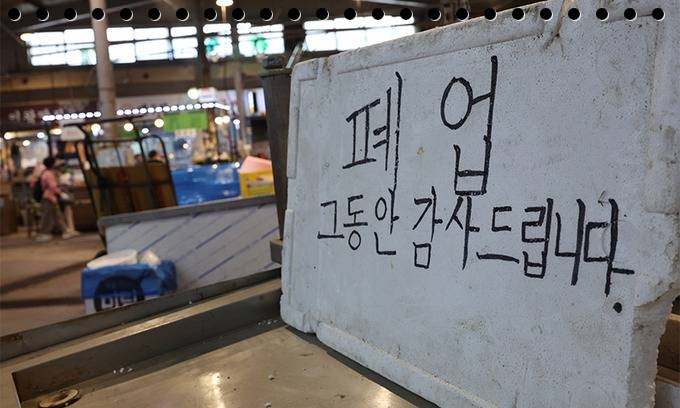 폐 업
그동안 감사드립니다.